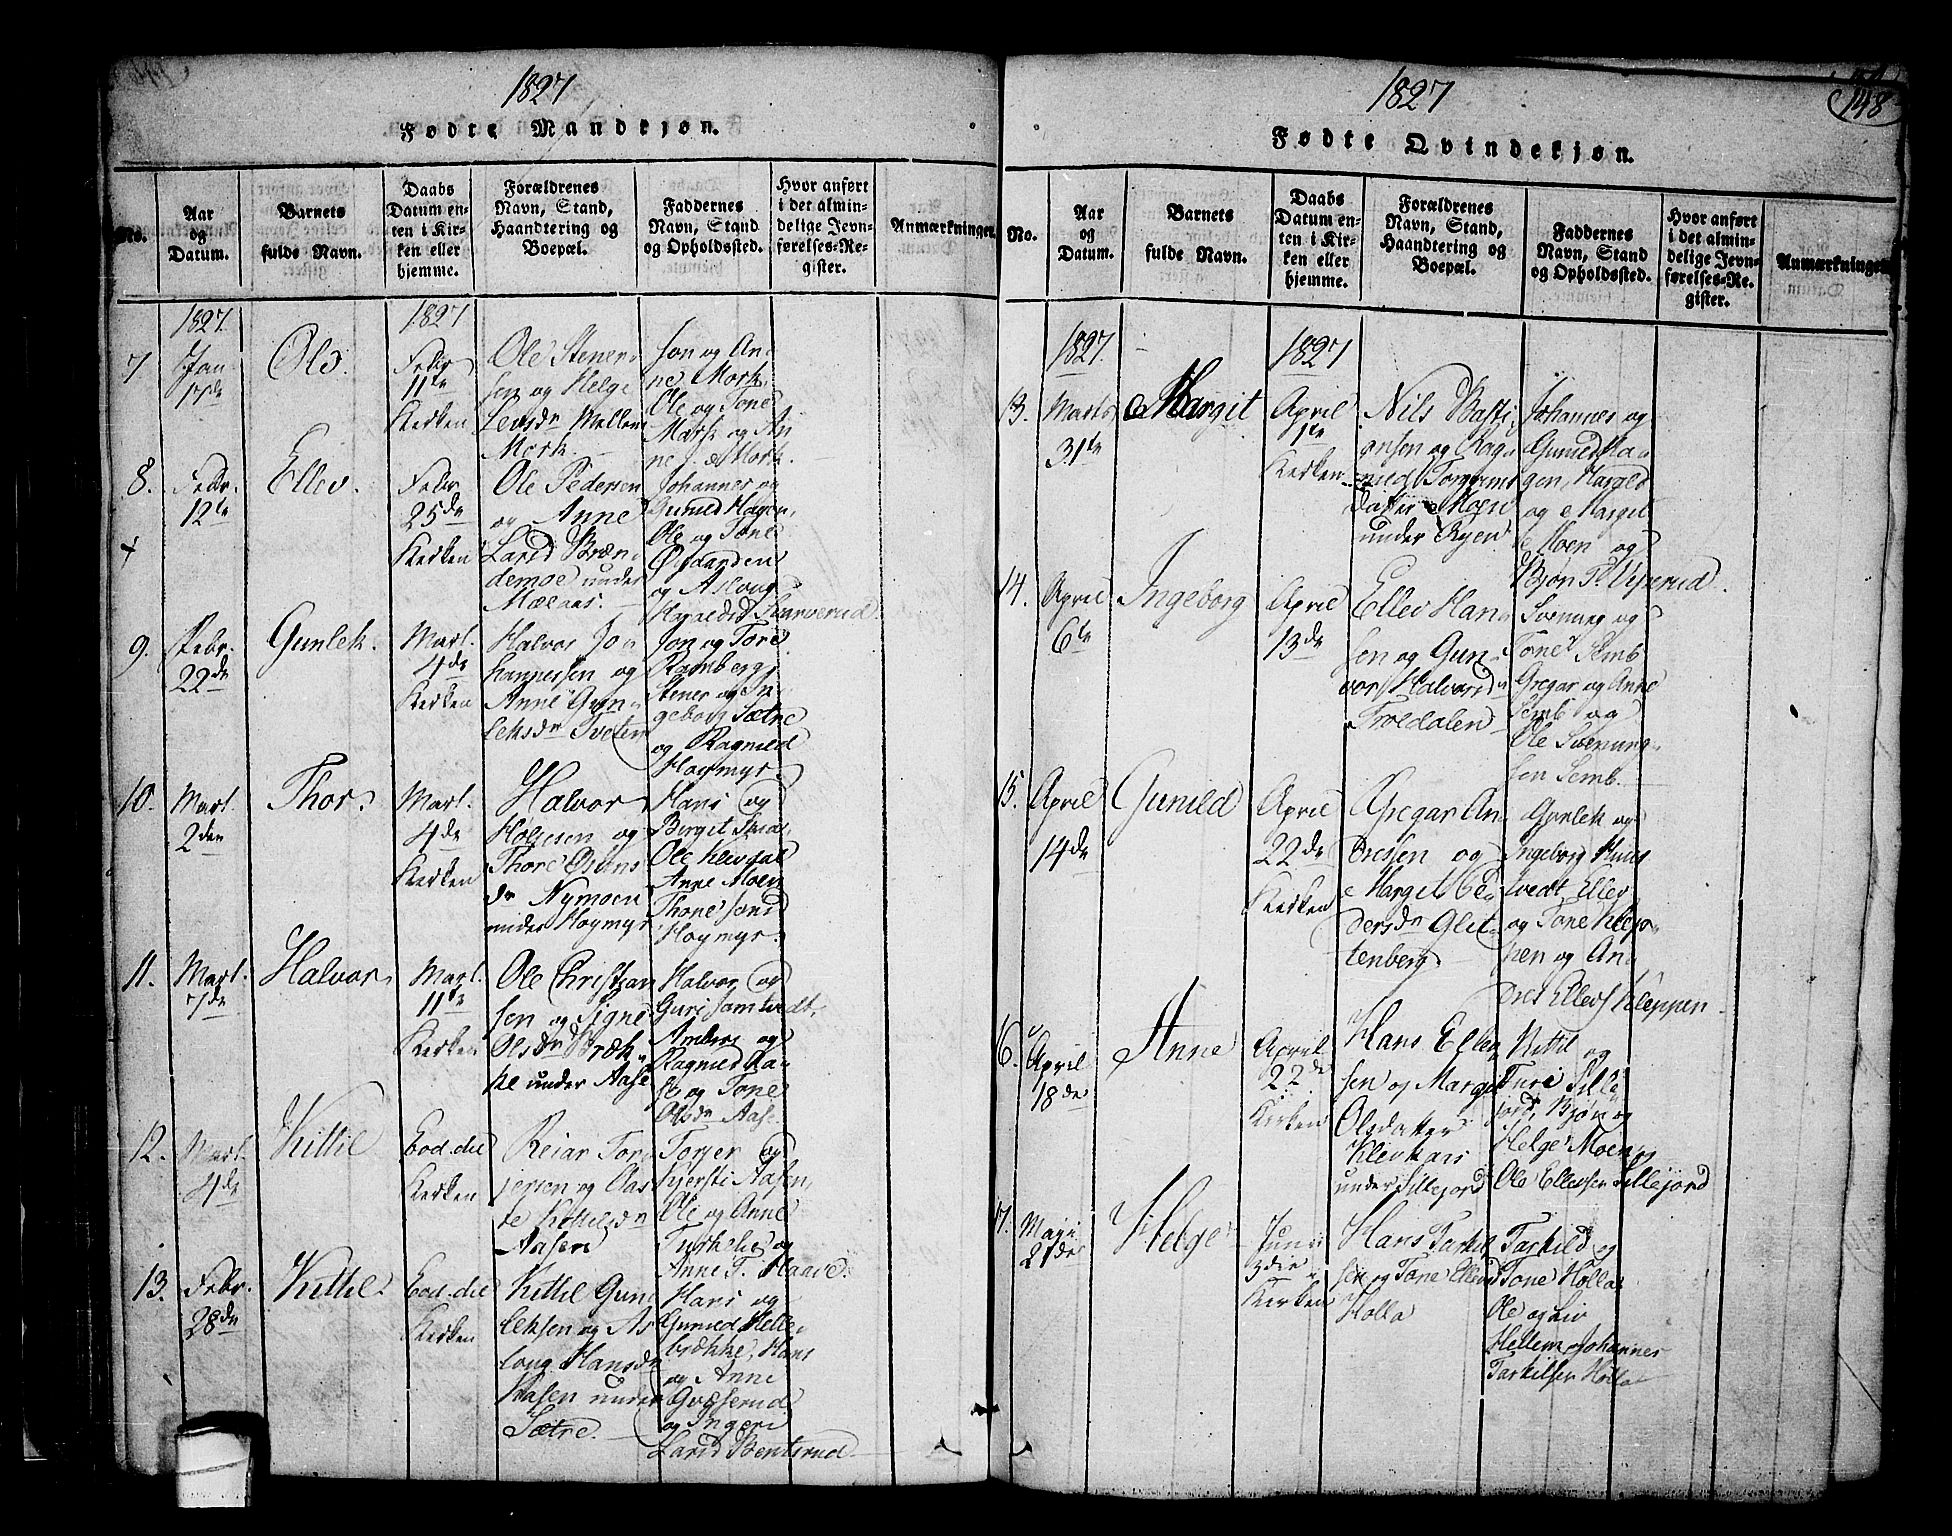 1827
Fødte Mandkjøn.
No.
Aar
og
Datum.
Barnets
fulde Navn.
Daabs
Datum en-
ten i Kir-
ken eller
hjemme.
Forældrenes
Navn, Stand,
Haandtering og
Boepæl.
Faddernes
Navn, Stand
og Opholdssted.
Hvor anført
i det almin-
delige Jevn-
førelses-Re-
gister.
Anmærkninger.
1827.
7
Jan
17de
Ole.
1827
Febr
11te
Kirken
Ole Stener
sen og Helge
Mellem
Mork.
son og An
ne Mork.
Ole og Tone
Mork og An
ne Mork.
8.
Febr.
12te
Ellev.
Febr
25de
Kirken
Ole Pedersen
og Anne
Larsd Bræn
demoe under
Mælaas.
Johannes og
Gunild Hagen,
Ole og Tone
og Aslaug
9.
Febr.
22de
Gunlek.
Mart.
4de
Kirken
Halvor Jo
hannessen og
Anne Gun
leksdr Tveten
Jon og Tone
Ramberg,
Stener og In
geborg Sætre
og Ragnild
Hogmyr.
10.
Mart.
2den
Thor.
Mart.
4de
Kirken
Halvor
og
Thore
dr Nymoen
under Hogmyr.
Hans og
Bergit
Ole Klevdal
Anne Moen
Thone
Hogmyr.
11.
Mart.
7de
Halvor
Mart.
11te
Kirken
Ole Christian
sen og Signe
Olsdr Bræk
ke under Aase
Halvor og
Guri Samtvedt,
Anders og
Ragnild Aa
se og Tone
Olsdr Aase
12.
Mart.
4de
Kittil
Eod. die
Kirken
Reiar Tor
jersen og Aas
te Kittilsdr
Aasen
Torjer og
Kjersti Aasen,
Ole og Anne
og
Anne T. Haave.
13.
Febr.
28de
Kittil.
Eod. die
Kirken
Kittil Gun
leksen og As
loug Hansdr
Aasen under
Sætre.
Hans og
Gunild Helle
brække, Hans
og Anne
og Ingeri
Larsd Bentsrud
1827
148
Fødte Qvindekjøn.
No.
Aar
og
Datum.
Barnets
fulde Navn.
Daabs
Datum en-
ten i Kir-
ken eller
hjemme.
Forældrenes
Navn, Stand,
Haandtering og
Boepæl.
Faddernes
Navn, Stand
og Opholdssted.
Hvor anført
i det almin-
delige Jevn-
førelses-Re-
gister.
Anmærkninger
1827.
13.
Marts
31te
Margit
1827
April
1te
Kirken
Nils Basti
ansen og Rag
nild Torgrims
datter Moen
under Ryen
Johannes og
Gunild Ha
gen, Harald
og Margit
Moen og
Bjøn
14.
April
6te
Ingeborg
April
13de
Ellev Han
sen og Gun
vor Halvorsd
Troedalen
Svenung og
Tone Semb
Gregar og Anne
Semb og
Ole Svenung
sen Semb.
15.
April
14de
Gunild
April
22de
Kirken
Gregar An
dressen og
Margit Pe
dersdr Glit
tenberg.
Gunlek og
Ingeborg Hans
tvedt, Ellev
og Tone Klep
pen og An
dres Ellevs Kleppen
16.
April
18de
Anne
April
22de
Kirken
Hans Ellev
sen og Margit
Olsdatter
Klevkaas
under Sillejord
Kittil og
Turi Sille
jord, Bjøn og
Helge Moen og
Ole Ellevsen Sillejord
17.
Maji
21de
Helge
Juni
3die
Kirken
Hans Tarkil
sen og Tone Ellevsd
Holla
Tarkild og
Tone Holla
Ole og Liv
Hellem og Johannes
Tarkilsen Holla